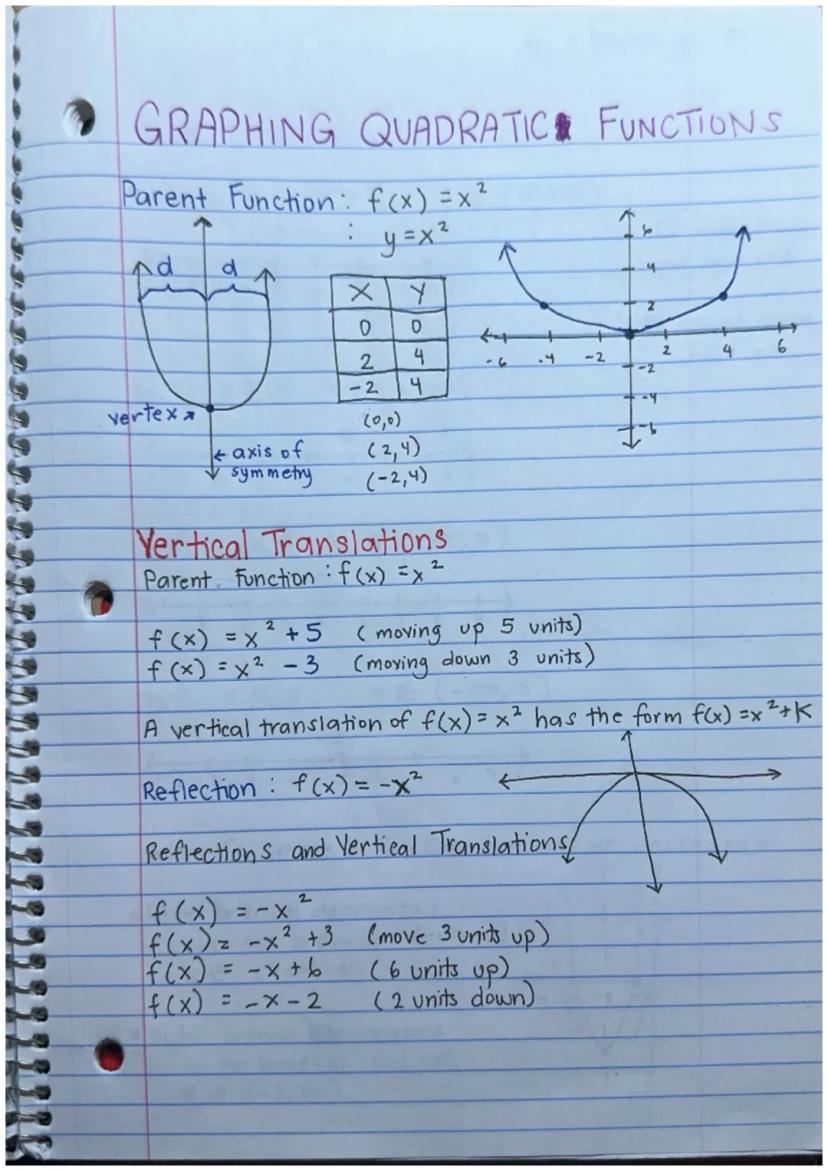 GRAPHING QUADRATIC FUNCTIONS
Parent Function: f(x) = x²
: y = x²
d d
vertex
← axis of
symmetry
X Y
0 0
2 4
-2 4
(0,0)
(2,4)
(-2,4)
6
4
2
-6 -4 -2 2 4 6
-2
-4
-6
Vertical Translations
Parent Function : f(x) = x²
f(x) = x² + 5 (moving up 5 units)
f(x) = x² - 3 (moving down 3 units)
A vertical translation of f(x) = x² has the form f(x) = x² + K
Reflection : f(x) = -x²
Reflections and Vertical Translations
f(x) = -x²
f(x) = -x² + 3 (move 3 units up)
f(x) = -x + 6 (6 units up)
f(x) = -x - 2 (2 units down)